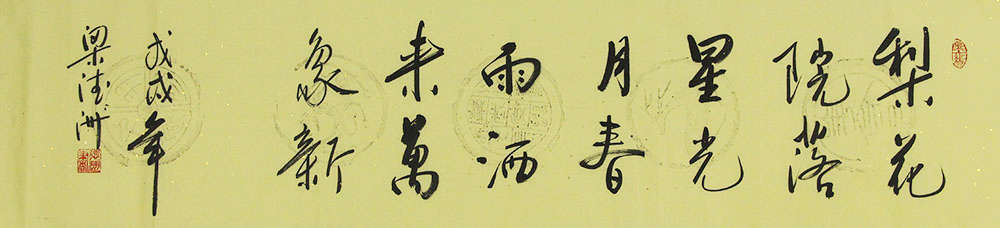 梨花
院落
星光
月春
雨洒
来萬
象新
戊戌年
梁德洲